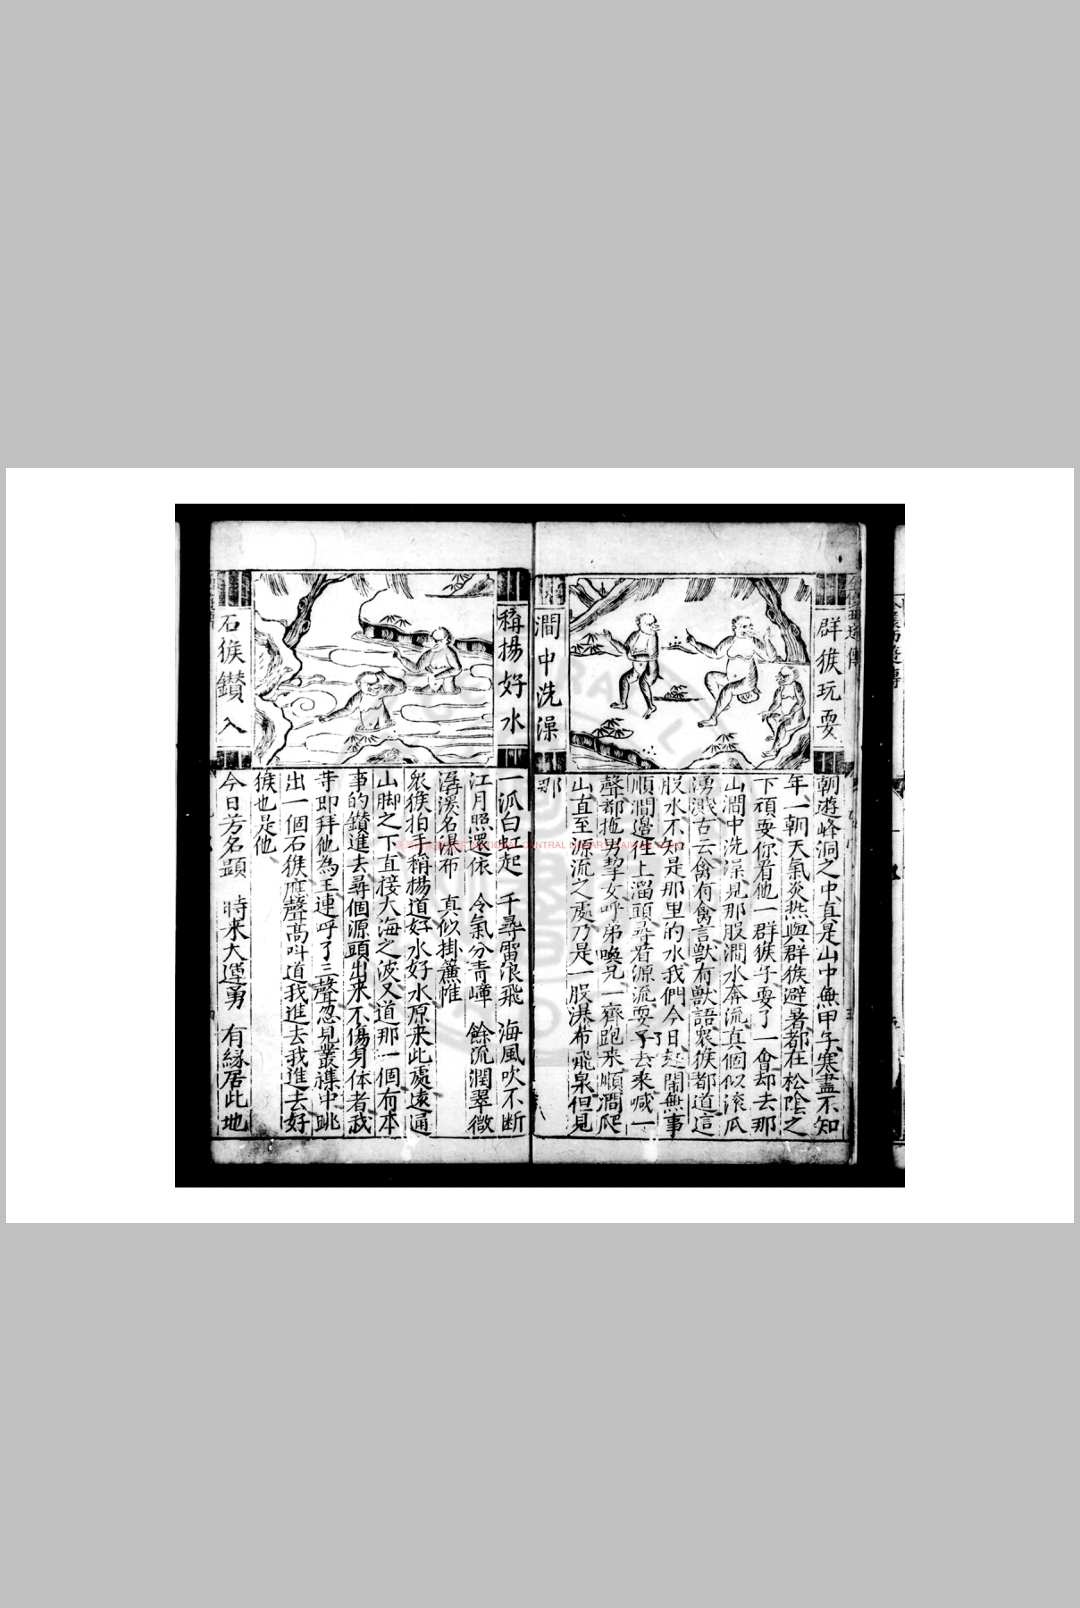 群猴玩耍
澗中洗澡
朝遊峰洞之中真是山中無甲子寒盡不知
年一朝天氣炎热與群猴避暑都在松陰之
下頑耍你看他一群猴子耍了一會却去那
山澗中洗澡見那股澗水奔流真個似滾瓜
湧濺古云禽有禽言獸有獸語衆猴都道這
股水不知是那里的水我們今日趕閙無事
順澗邊往上溜頭尋看源流耍子去來喊一
聲都拖男挈女呼弟喚兄一齊跑来順澗爬
山直至源流之處乃是一股瀑布飛泉但見
那
稱揚好水
石猴鑚入
一派白虹起 千尋雪浪飛 海風吹不断
江月照還依 令氣分青嶂 餘流潤翠微
潺湲名瀑布 真似掛簾帷
衆猴拍手稱揚道好水好水原来此處遠通
山脚之下直接大海之波又道那一個有本
事的鑚進去尋個源頭出来不傷身体者我
等即拜他為王連呼了三聲忽見叢襍中跳
出一個石猴應聲高叫道我進去我進去好
猴也是他
今日芳名顕 時来大運勇 有緣居此地